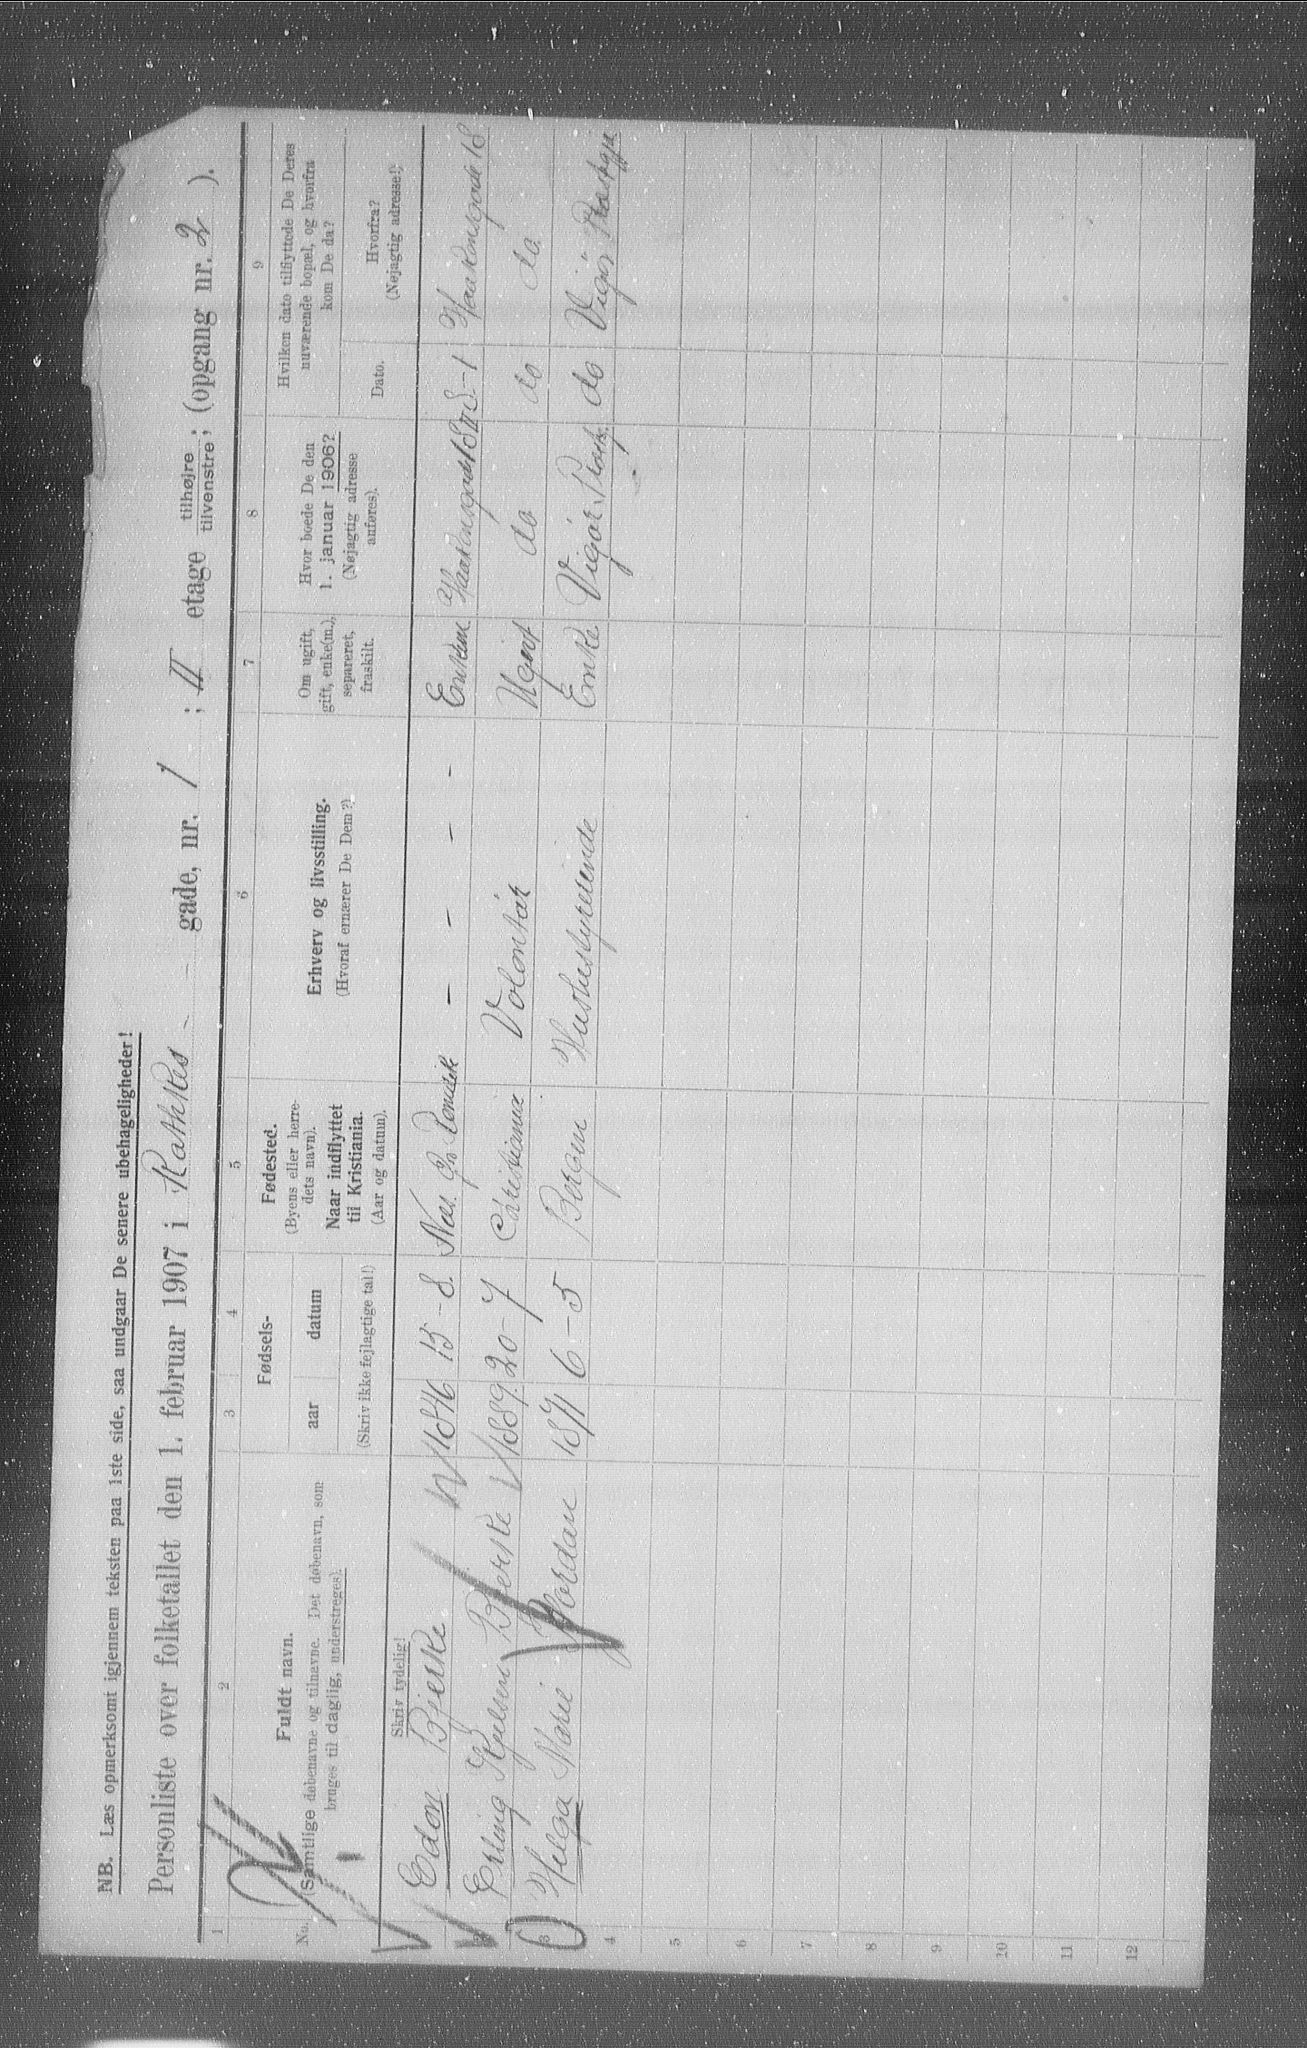 NB. Læs opmerksomt igjennem teksten paa 1ste side, saa undgaar De senere ubehageligheder!
Personliste over folketallet den 1. februar 1907 i Rathkes gade, nr. 1 ; II etage tilhøjre tilvenstre; (opgang nr. 2 ).
1 2 3 4 5 6 7 8 9
No. Fuldt navn. (Samtlige døbenavne og tilnavne. Det døbenavn, som bruges til daglig, understreges).
Fødsels-
aar datum
(Skriv ikke fejlagtige tal!)
Fødested. (Byens eller herredets navn). Naar indflyttet til Kristiania. (Aar og datum).
Erhverv og livsstilling. (Hvoraf ernærer De Dem?)
Om ugift, gift, enke(m.), separeret, fraskilt.
Hvor boede De den 1. januar 1906? (Nøjagtig adresse anføres).
Hvilken dato tilflyttede De Deres nuværende bopæl, og hvorfra kom De da?
Dato. Hvorfra? (Nøjagtig adresse!)
Skriv tydelig!
Edon Bjerke 1846 15-8. Næs - - - - Enkem Haakonsgade 18 1 Haakonsgade 18
Erling Bjerke 1889 20-7 Christiania Volontár Ugift do do do
3 Helga Marie Jordan 1871 6-5 Bergen Husbestyrerinde Enke do
4
5
6
7
8
9
10
11
12